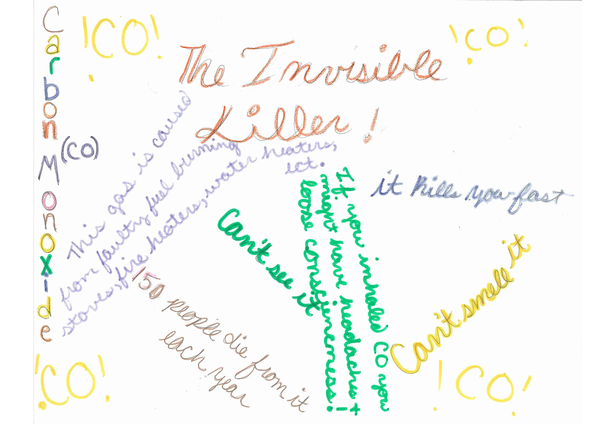 !CO!
!CO!
The Invisible
Killer!
Carbon Monoxide
(CO)
This gas is caused
from faulty fuel burning
stoves, fire heaters, water heaters,
ect.
it kills you fast
Can't see it
If you inhaled CO you
might have headaches +
loose consciencness!
Can't smell it
150 people die from it
each year
!CO!
!CO!